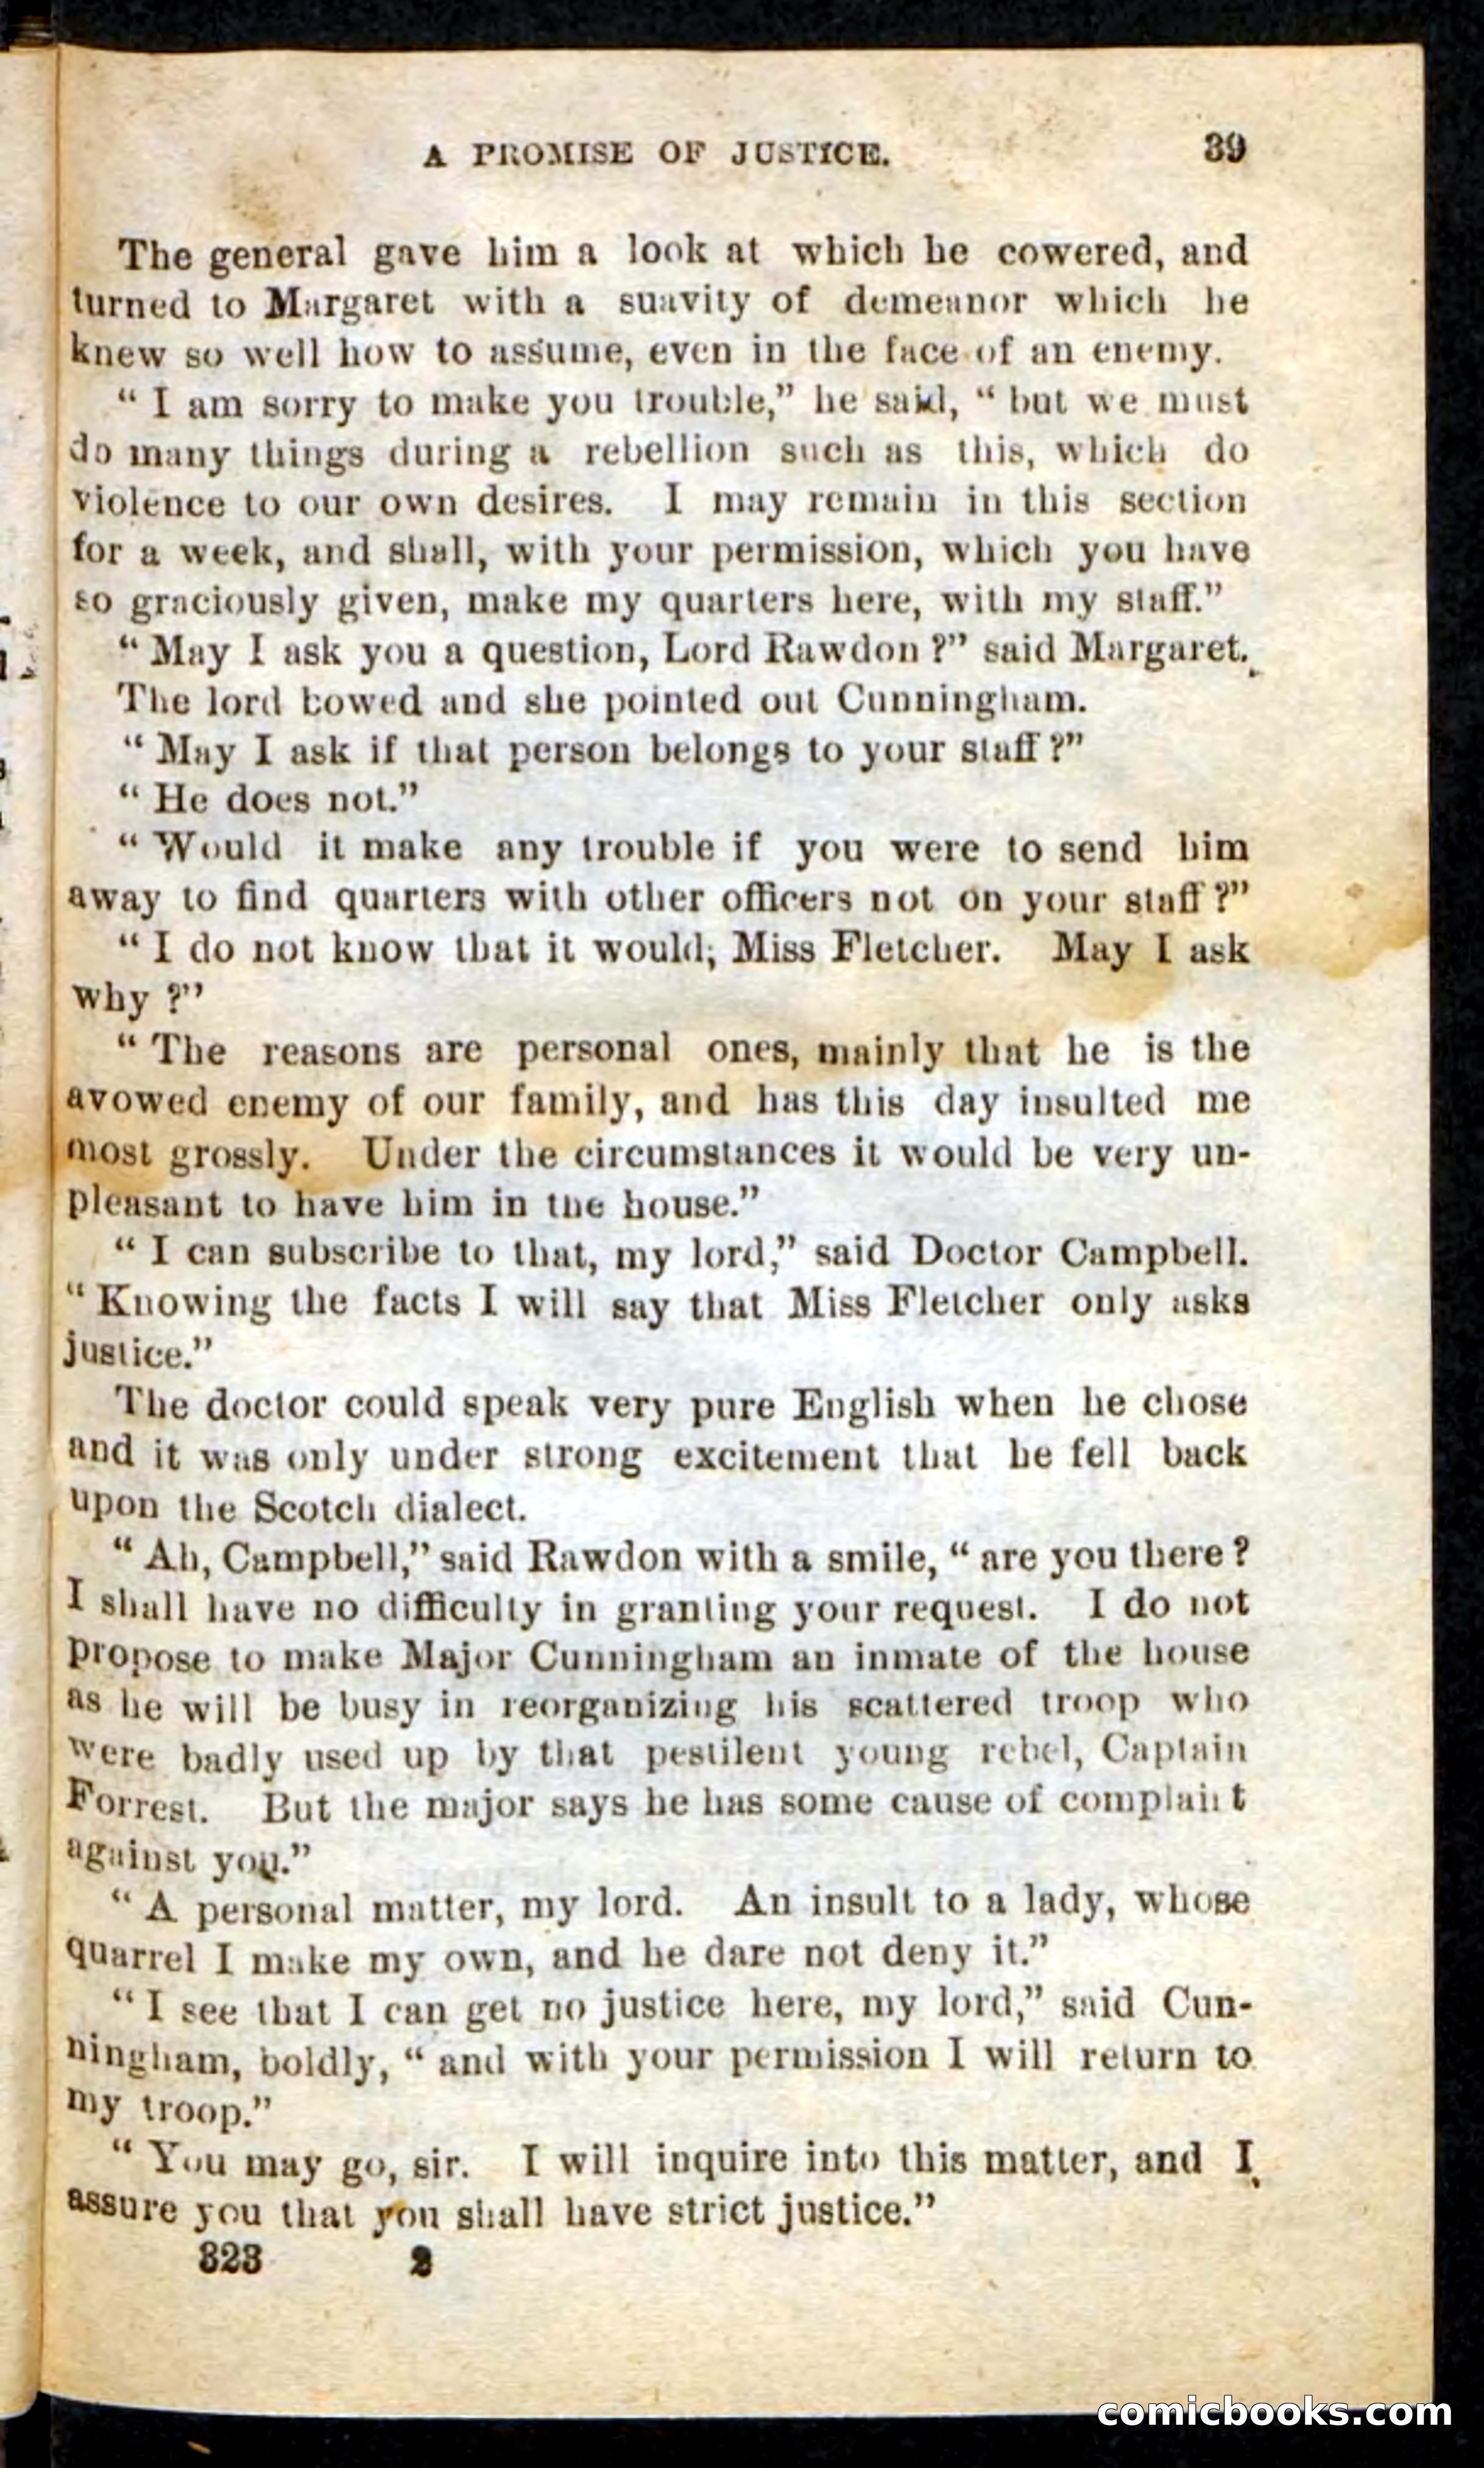 A PROMISE OF JUSTICE. 39
The general gave him a look at which he cowered, and
turned to Margaret with a suavity of demeanor which he
knew so well how to assume, even in the face of an enemy.
“ I am sorry to make you trouble,” he said, “ but we must
do many things during a rebellion such as this, which do
violence to our own desires. I may remain in this section
for a week, and shall, with your permission, which you have
so graciously given, make my quarters here, with my staff.”
“ May I ask you a question, Lord Rawdon ?” said Margaret.
The lord bowed and she pointed out Cunningham.
“ May I ask if that person belongs to your staff ?”
“ He does not.”
“ Would it make any trouble if you were to send him
away to find quarters with other officers not on your staff ?”
“ I do not know that it would; Miss Fletcher. May I ask
why ?”
“ The reasons are personal ones, mainly that he is the
avowed enemy of our family, and has this day insulted me
most grossly. Under the circumstances it would be very un-
pleasant to have him in the house.”
“ I can subscribe to that, my lord,” said Doctor Campbell.
“ Knowing the facts I will say that Miss Fletcher only asks
justice.”
The doctor could speak very pure English when he chose
and it was only under strong excitement that he fell back
upon the Scotch dialect.
“ Ah, Campbell,” said Rawdon with a smile, “ are you there ?
I shall have no difficulty in granting your request. I do not
propose to make Major Cunningham an inmate of the house
as he will be busy in reorganizing his scattered troop who
were badly used up by that pestilent young rebel, Captain
Forrest. But the major says he has some cause of complaint
against you.”
“ A personal matter, my lord. An insult to a lady, whose
quarrel I make my own, and he dare not deny it.”
“ I see that I can get no justice here, my lord,” said Cun-
ningham, boldly, “ and with your permission I will return to
my troop.”
“ You may go, sir. I will inquire into this matter, and I
assure you that you shall have strict justice.”
323 2
comicbooks.com